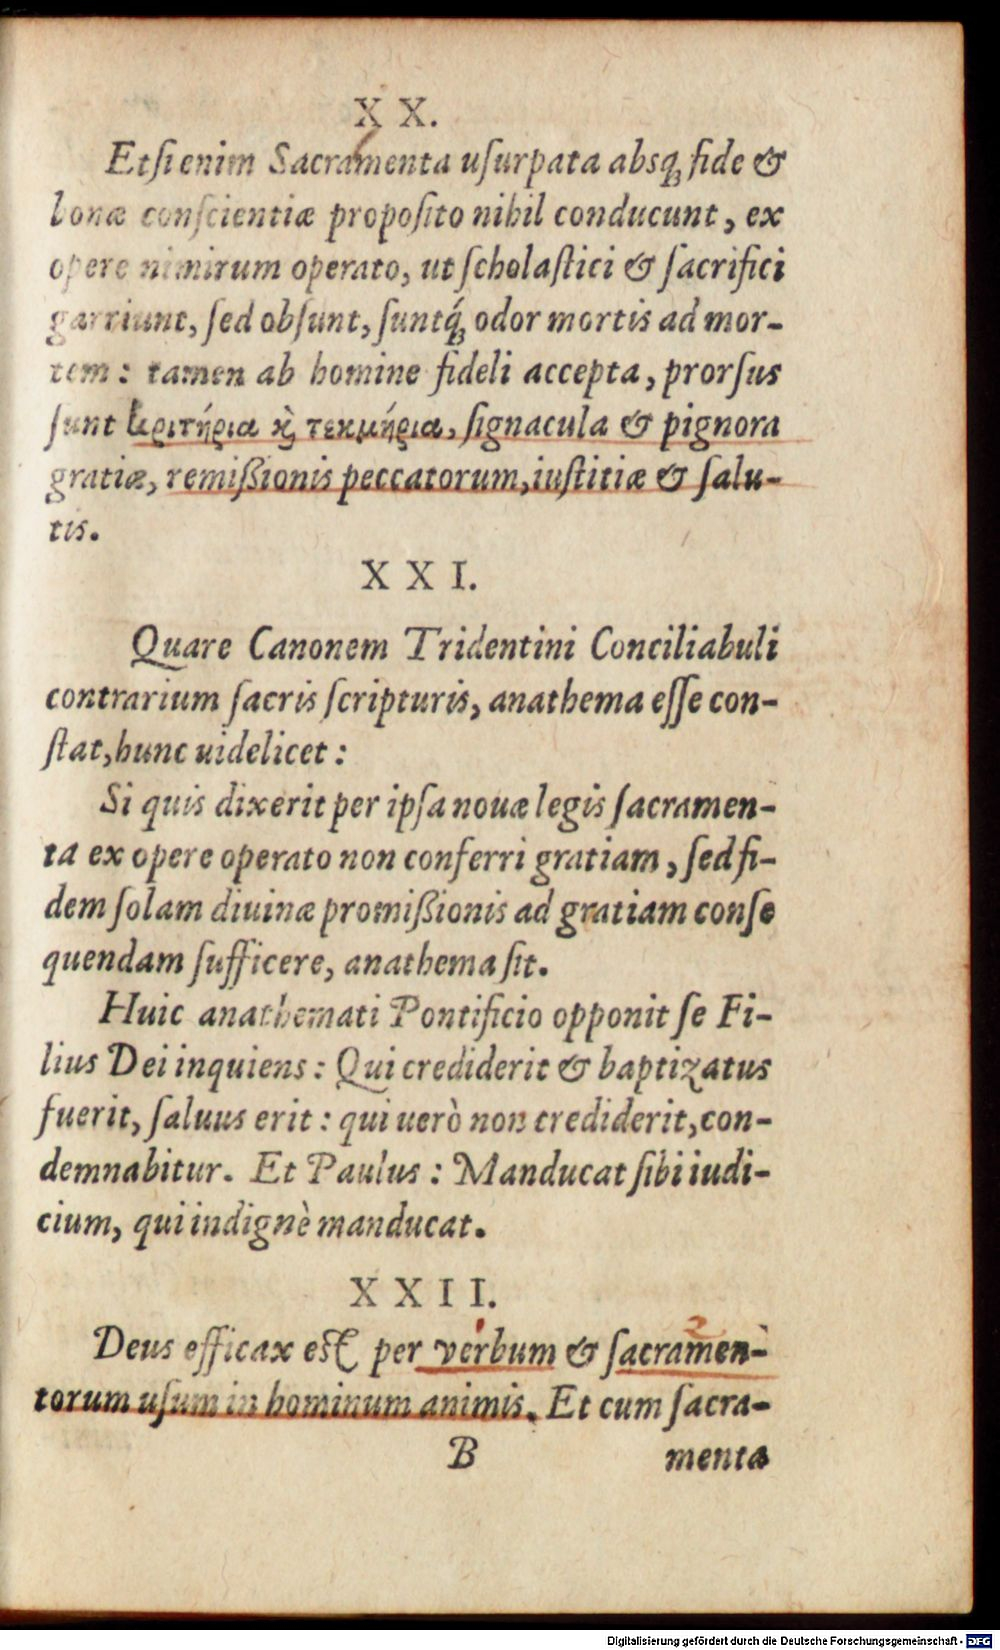 X X.
Etſi enim Sacramenta uſurpata absq́ꝫ fide &
bonæ conſcientiæ propoſito nihil conducunt, ex
opere nimirum operato, ut ſcholaſtici & ſacrifici
garriunt, ſed obſunt, ſuntq́ꝫ odor mortis ad mor-
tem: tamen ab homine fideli accepta, prorſus
ſunt κριτήρια ϗ τεκμήρια, ſignacula & pignora
gratiæ, remißionis peccatorum, iuſtitiæ & ſalu-
tis.
X X I.
Quare Canonem Tridentini Conciliabuli
contrarium ſacris ſcripturis, anathema eſſe con-
ſtat, hunc uidelicet:
Si quis dixerit per ipſa nouæ legis ſacramen-
ta ex opere operato non conferri gratiam, ſed fi-
dem ſolam diuinæ promißionis ad gratiam conſe
quendam ſufficere, anathema ſit.
Huic anathemati Pontificio opponit ſe Fi-
lius Dei inquiens: Qui crediderit & baptizatus
fuerit, ſaluus erit: qui uerò non crediderit, con-
demnabitur. Et Paulus: Manducat ſibi iudi-
cium, qui indignè manducat.
X X I I.
Deus efficax eſt per verbum & ſacramen-
torum uſum in hominum animis. Et cum ſacra-
B menta
Digitalisierung gefördert durch die Deutsche Forschungsgemeinschaft - DFG